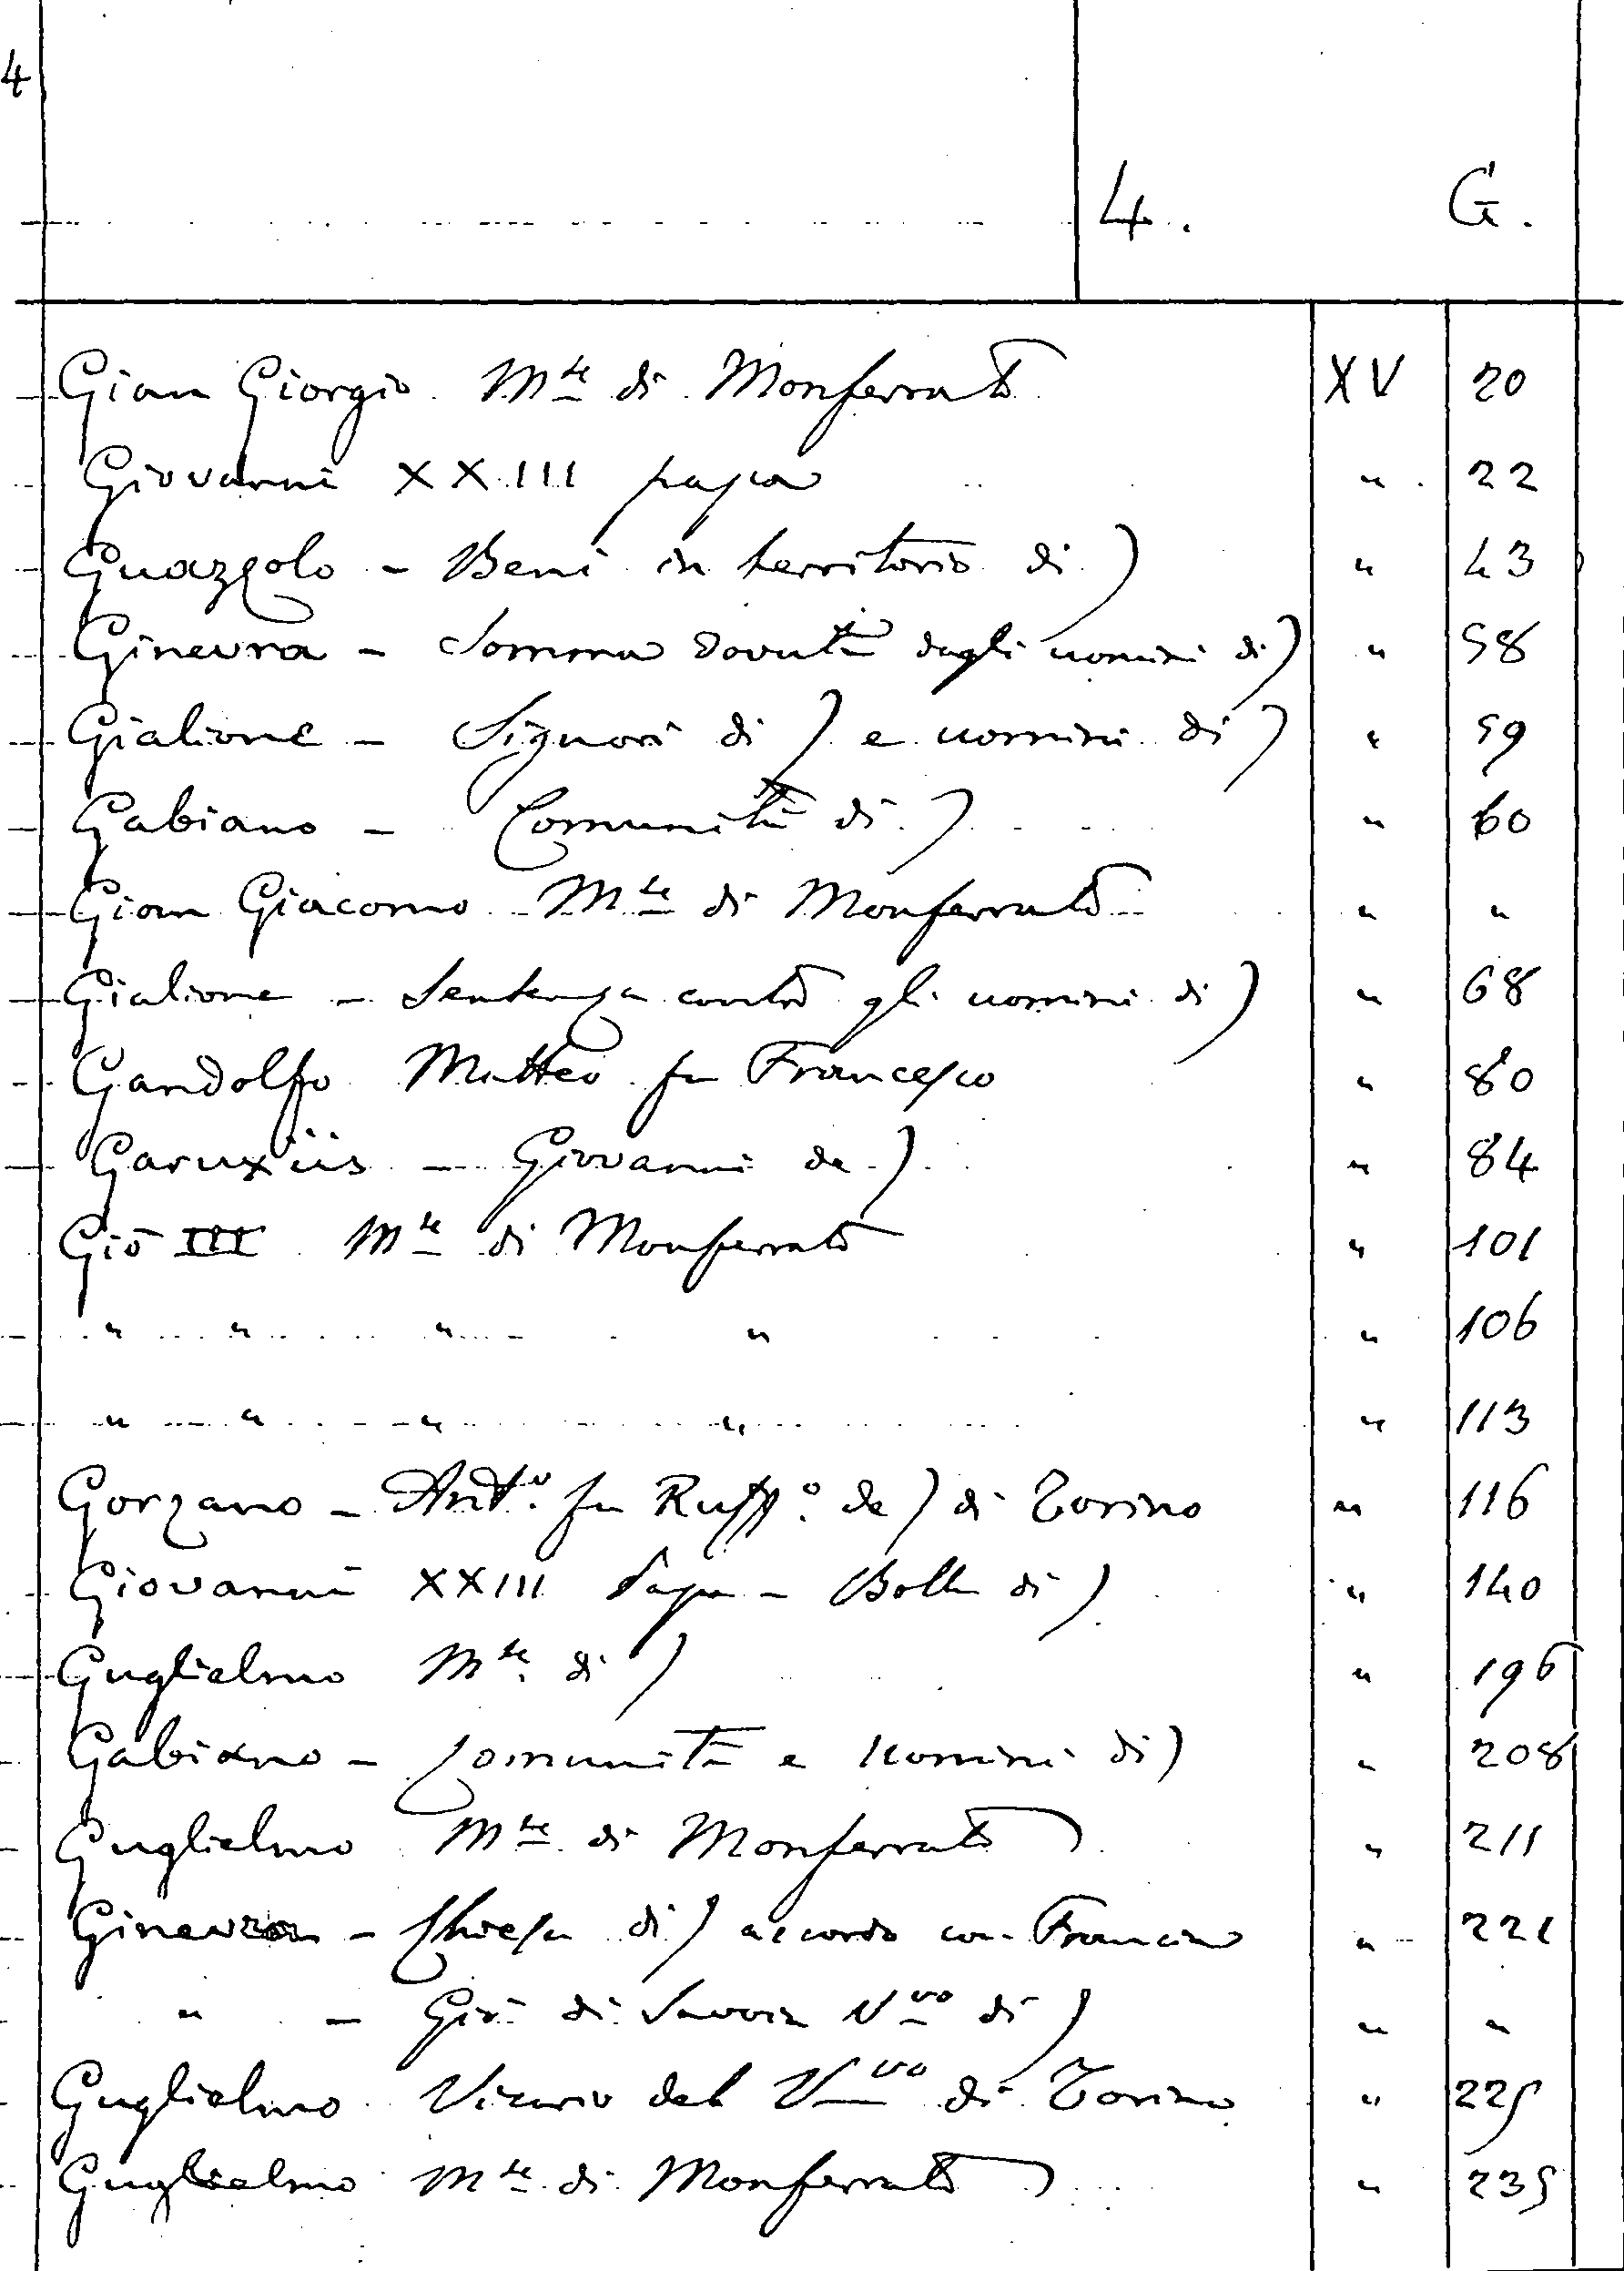 4
4. G.
Gian Giorgio Mse di Monferrato XV 20
Giovanni XXIII papa " 22
Guazzolo - Beni in territorio di ) " 43
Ginevra - Somma dovuta dagli uomini di ) " 58
Gialione - Signori di ) e uomini di ) " 59
Gabiano - Comunità di ) " 60
Gian Giacomo Mse di Monferrato " "
Gialione - Sentenza contro gli uomini di ) " 68
Gandolfo Matteo fu Francesco " 80
Garuxiis - Giovanni de ) " 84
Gio III Mse di Monferrato " 101
" " " " " 106
" " " " " 113
Gorzano - Anto. fu Ruffo. de ) di Torino " 116
Giovanni XXIII Papa - Bolla di ) " 140
Guglielmo Mse. di ) " 196
Gabiano - Comunità e Uomini di ) " 208
Guglielmo Mse di Monferrato ) " 211
Ginevra - Chiesa di ) accordo con Francia " 221
" - Gio di Savoia Vvo di ) " "
Guglielmo Vicario del Vvo di Torino " 225
Guglielmo Mse di Monferrato ) " 235